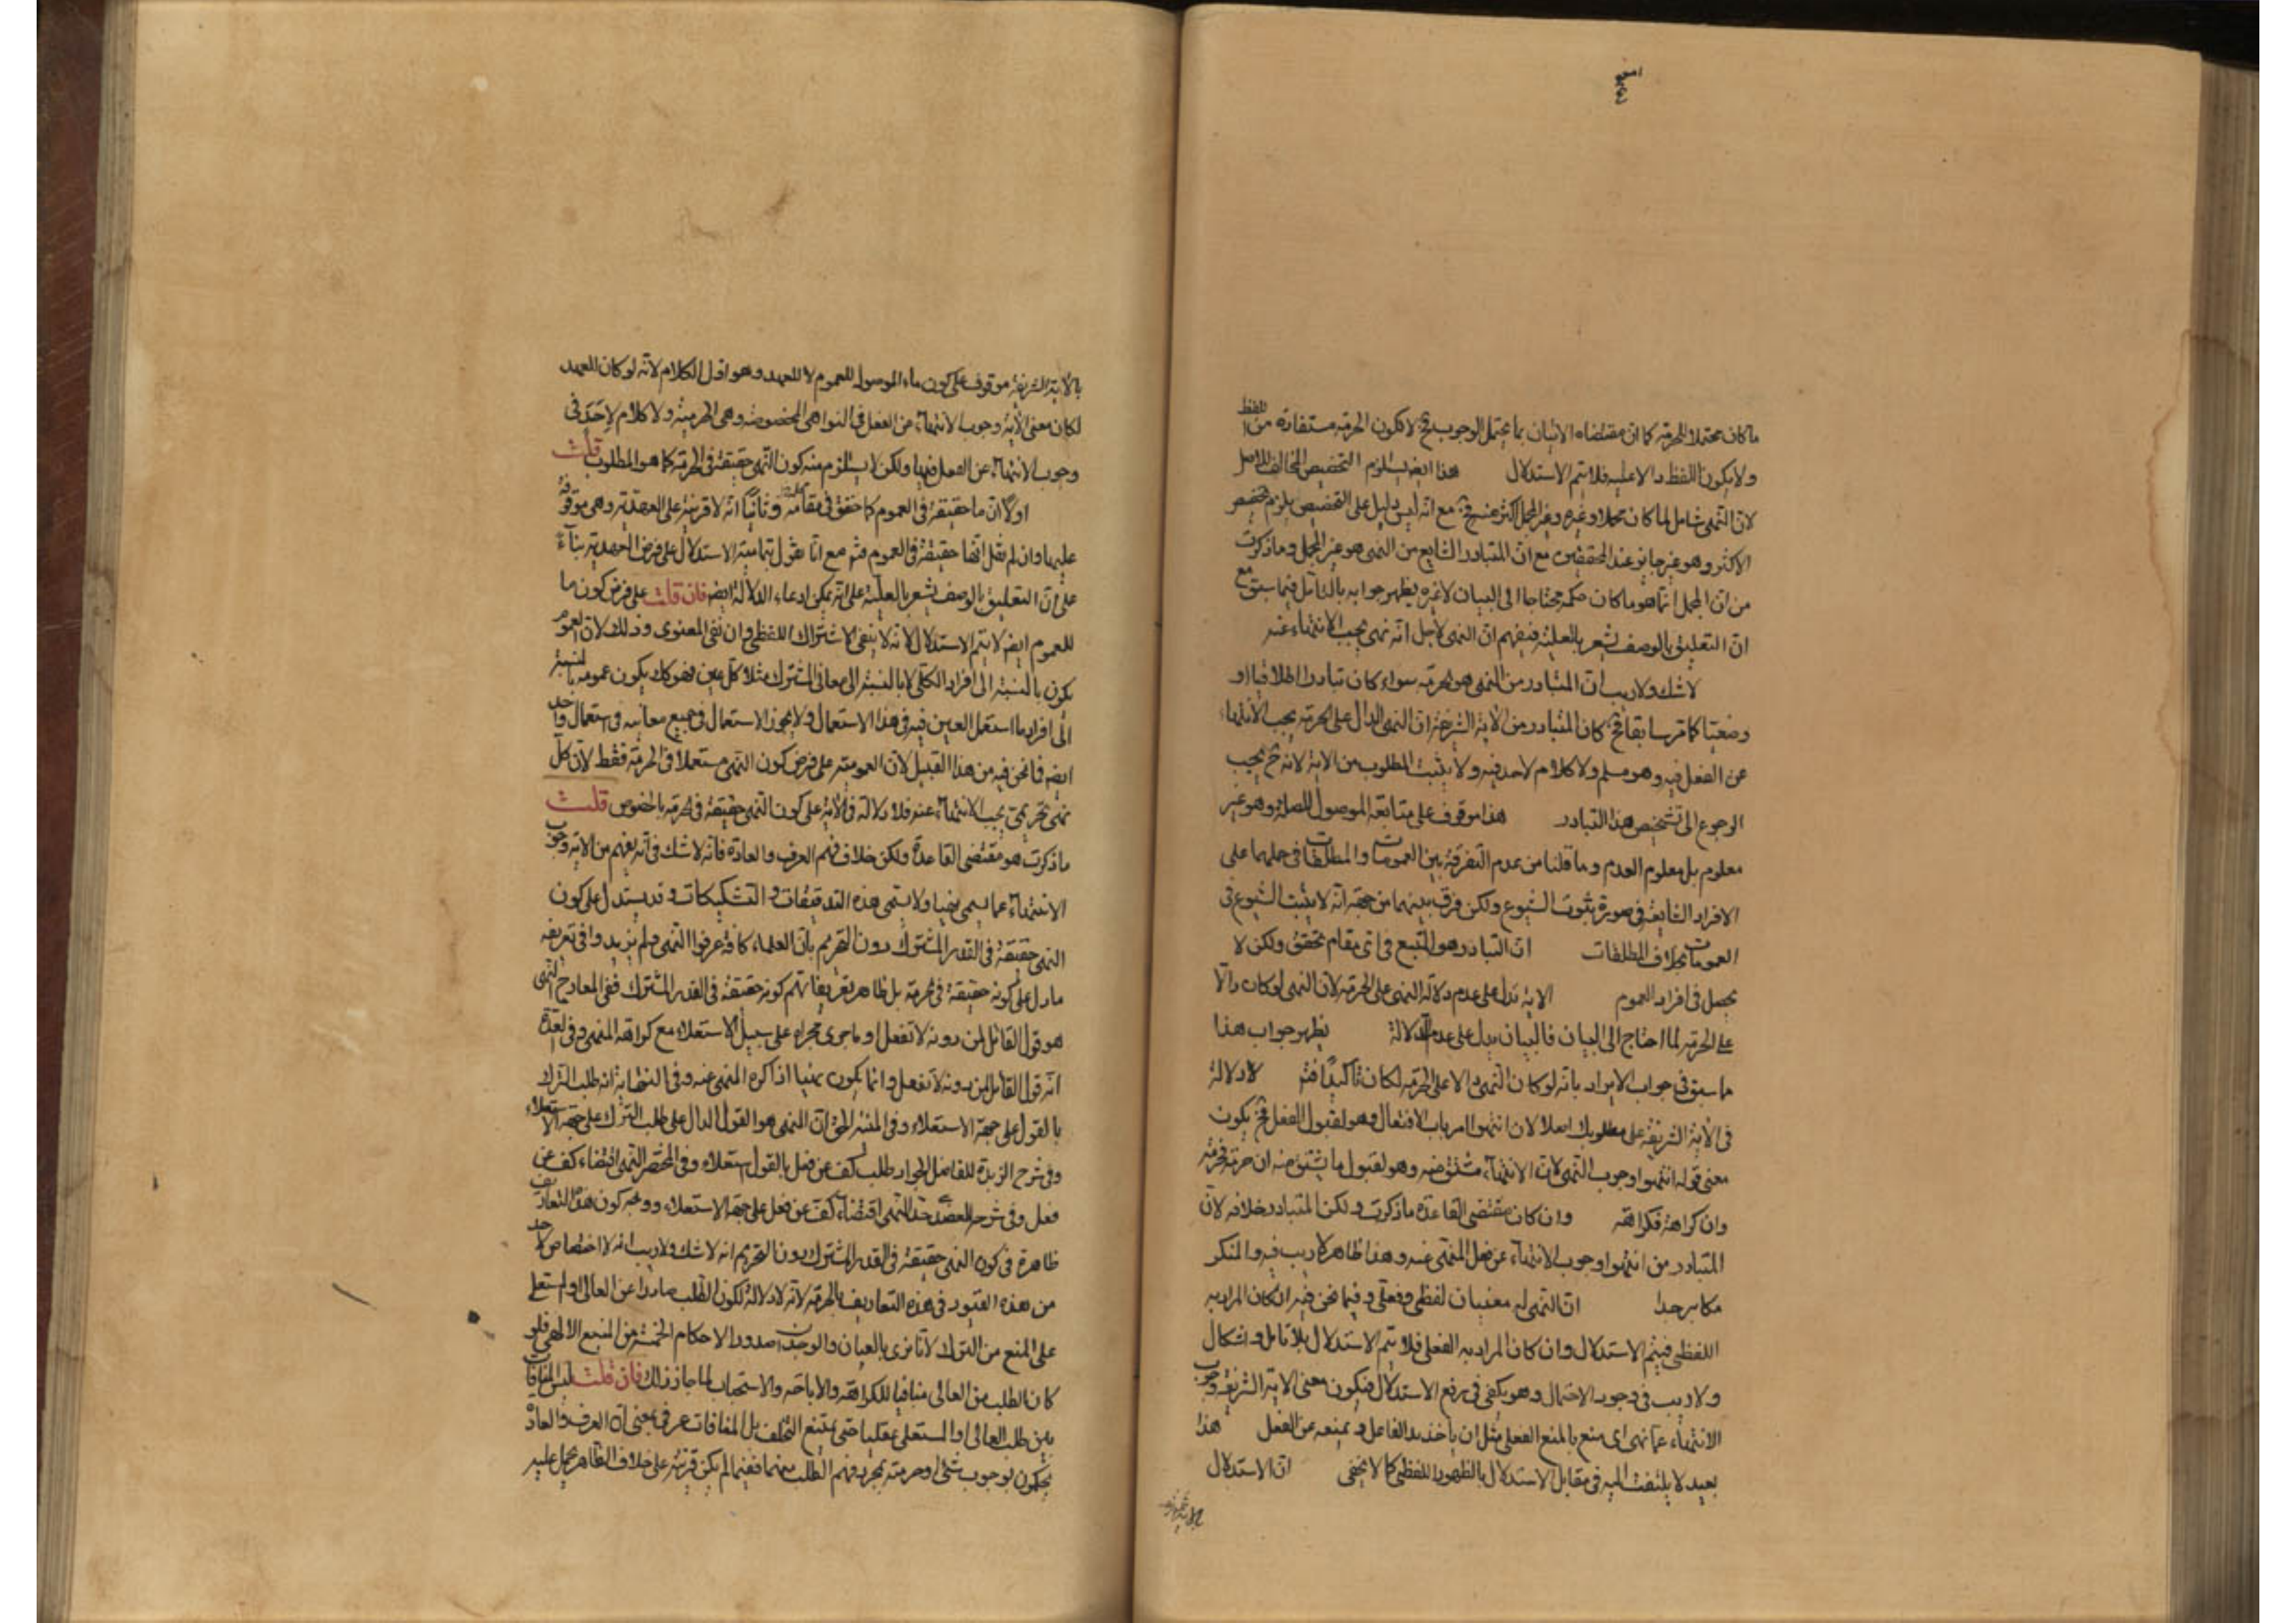 ما كان محتملا للحرمة كما ان مقتضاه الاتيان بما يحتمل الوجوب فح لا تكون الحرمة مستفادة من اللفظ
ولا يكون اللفظ دالا عليه فلا يتم الاستدلال هذا ايضا يستلزم التخصيص المخالف للاصل
لان النهى شامل لما كان مجملا وغيره وغير المجمل اكثر منه فح مع انه ليس دليل على التخصيص يلزم تخصيص
الاكثر وهو غير جايز عند المحققين مع ان المتبادر الشايع من النهى هو غير المجمل وما ذكرت
من ان المجمل انما هو ما كان حكمه محتاجا الى البيان لا غيره يظهر جوابه بالتامل فيما سبق مع
ان التعليق بالوصف يشعر بالعلية فيفهم ان النهى لاجل انه نهى يجب الانتهاء عنه
لا شك ولا ريب ان المتبادر من النهى هو الحرمة سواء كان تبادرا اطلاقيا او
وضعيا كما مر سابقا فح كان المتبادر من الاية الشريفة ان النهى الدال على الحرمة يجب الانتهاء
عن الفعل فيه وهو مسلم ولا كلام لاحد فيه ولا يثبت المطلوب من الاية لانه ح يجب
الرجوع الى تشخيص هذا التبادر هذا موقوف على متابعة الموصول للصلة وهو غير
معلوم بل معلوم العدم وما قلنا من عدم التفرقة بين العمومات والمطلقات فى حملهما على
الافراد الشايعة فى صورة ثبوت الشيوع ولكن فرق بينهما من جهة انه لا يثبت الشيوع فى
العمومات بخلاف المطلقات ان التبادر هو المتبع فى اى مقام تحقق ولكن لا
يحصل فى افراد العموم الاية تدل على عدم دلالة النهى على الحرمة لان النهى لو كان دالا
على الحرمة لما احتاج الى البيان فالبيان يدل على عدم الدلالة يظهر جواب هذا
ما سبق فى جواب الايراد بانه لو كان النهى دالا على الحرمة لكان تاكيدا فتم لا دلالة
فى الاية الشريفة على مطلوبك اصلا لان انتهوا امر باب الافتعال وهو لقبول الفعل فح يكون
معنى قوله انتهوا وجوب النهى لان الانتهاء مشتق منه وهو لقبول ما يشتق منه ان حرمة فحرمة
وان كراهة فكراهة وان كان مقتضى القاعدة ما ذكرت ولكن المتبادر خلافه لان
المتبادر من انتهوا وجوب الانتهاء عن فعل المنهى عنه وهذا ظاهر لا ريب فيه والمنكر
مكابر جدا ان النهى له معنيان لفظى وفعلى وفيما نحن فيه ان كان المراد به
اللفظى فيتم الاستدلال وان كان المراد به الفعلى فلا يتم الاستدلال بلا تامل واشكال
ولا ريب فى وجود الاحتمال وهو يكفى فى رفع الاستدلال فيكون معنى الاية الشريفة وجوب
الانتهاء عما نهى اى منع بالمنع الفعلى مثل ان ياخذ يد الفاعل ويمنعه عن الفعل هذا
بعيد لا يلتفت اليه فى مقابل الاستدلال بالظهور اللفظى كما لا يخفى ان الاستدلال
بالاية الشريفة
بالاية الشريفة موقوف على كون ماء الموصولة للعموم لا للعهد وهو اول الكلام لانه لو كان للعهد
لكان معنى الاية وجوب الانتهاء عن الفعل فى النواهى المخصوصة وهى الحرمية ولا كلام لاحد فى
وجوب الانتهاء عن الفعل فيها ولكن لا يستلزم منه كون النهى حقيقة فى الحرمة كما هو المطلوب قلت
اولا ان ما حقيقة فى العموم كما حقق فى مقامه وثانيا انه لا قرينة على العهدية وهى موقوفة
عليها وان لم نقل انها حقيقة فى العموم فتم مع انا نقول تمامية الاستدلال على فرض العهدية بناء
على ان التعليق بالوصف يشعر بالعلية على انه يمكن ادعاء الدلالة ايضا فان قلت على فرض كون ما
للعموم ايضا لا يتم الاستدلال لانه لا ينفى الاشتراك اللفظى وان نفى المعنوى وذلك لان العموم
يكون بالنسبة الى افراد الكلى لا بالنسبة الى معانى المشترك مثلا كل عين فهو كك يكون عمومه بالنسبة
الى افراد ما استعمل العين فيه فى هذا الاستعمال ولا يجوز الاستعمال فى جميع معانيه فى استعمال واحد
ايضا فما نحن فيه من هذا القبيل لان العمومية على فرض كون النهى مستعملا فى الحرمة فقط لان كل
نهى تحريمى يجب الانتهاء عنه فلا دلالة فى الاية على كون النهى حقيقة فى الحرمة بالخصوص قلت
ما ذكرت هو مقتضى القاعدة ولكن خلاف فهم العرف والعادة فانه لا شك فى انه يفهم من الاية وجوب
الانتهاء عما يسمى نهيا ولا يسمى هذه التدقيقات والتشكيكات وقد يستدل على كون
النهى حقيقة فى القدر المشترك دون التحريم بان العلماء كافة عرفوا النهى ولم يزيدوا فى تعريفه
ما دل على كونه حقيقة فى الحرمة بل ظاهر تعريفاتهم كونه حقيقة فى القدر المشترك ففى المعارج النهى
هو قول القائل لمن دونه لا تفعل او ما جرى مجراه على سبيل الاستعلاء مع كراهة المنهى وفى العدة
انه قول القائل لمن دونه لا تفعل وانما يكون نهيا اذا كره المنهى عنه وفى النهاية انه طلب الترك
بالقول على جهة الاستعلاء وفى المنية الحق ان النهى هو القول الدال على طلب الترك على جهة الاستعلاء
وفى شرح الزبدة للفاضل الجواد طلب كف عن فعل بالقول استعلاء وفى المختصر النهى اقتضاء كف عن
فعل وفى شرحه للعضد حد النهى اقتضاء كف عن فعل على جهة الاستعلاء ووجه كون هذه التعاريف
ظاهرة فى كون النهى حقيقة فى القدر المشترك دون التحريم انه لا شك ولا ريب انه لا اختصاص لاحد
من هذه القيود فى هذه التعاريف بالحرمة لانه لا دلالة لكون الطلب صادرا عن العالى او المستعلى
على المنع من الترك لانا نرى بالعيان والوجدان صدور الاحكام الخمسة من المنبع الالهى فلو
كان الطلب من العالى منافيا للكراهة والاباحة والاستحباب لما جاز ذلك فان قلت ليس المنافات
بين طلب العالى والمستعلى عقليا حتى يمتنع التخلف بل المنافات عرفى بمعنى ان العرف والعادة
يحكمون بوجوب شئ او حرمته بمجرد فهم الطلب منهما ففيما لم يكن قرينة على خلاف الظاهر يحمل عليه